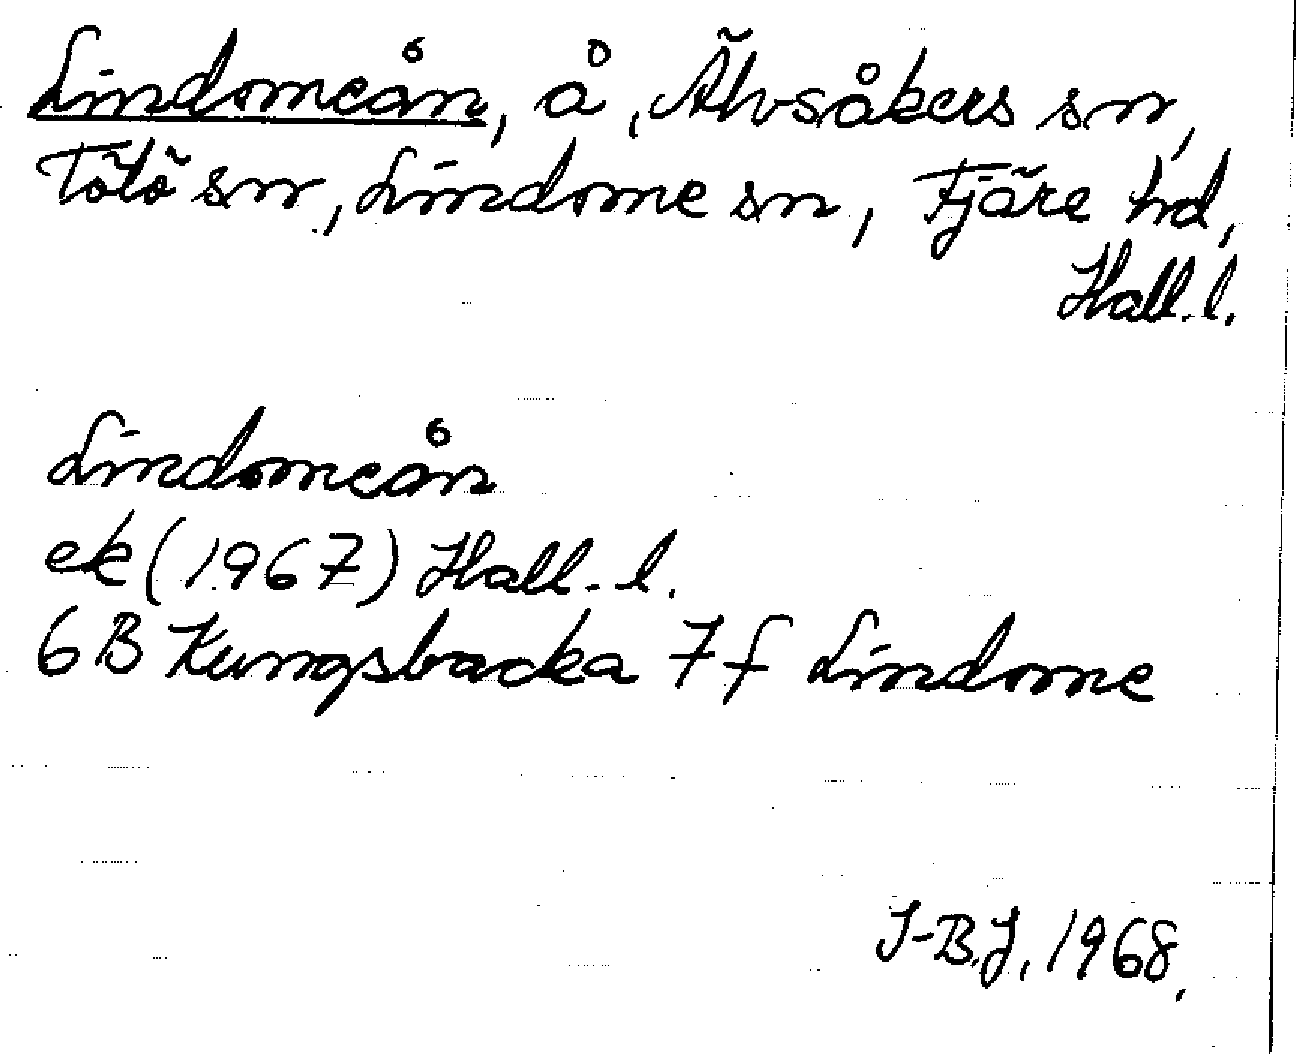 Lindomeån, å, Älvsåkers sn,
Tölö sn, Lindome sn, Fjäre hd,
Hall. l.
Lindomeån
ek (1967) Hall. l.
6B Kungsbacka 7f Lindome
I-B.J, 1968.